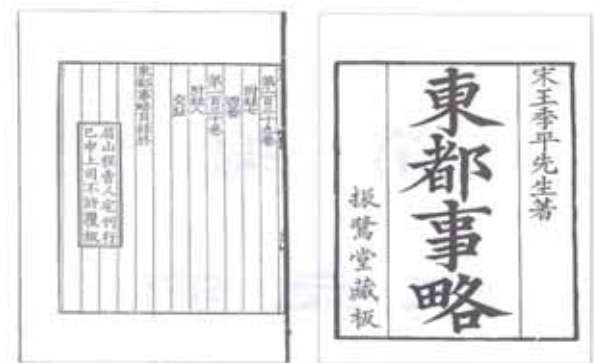 宋王季平先生著
東都事略
振鷺堂藏板
第一百二十九卷
附録七
西蕃
第一百三十卷
附録八
交趾
東都事略目録終
眉山程舍人宅刊行
已申上司不許覆板